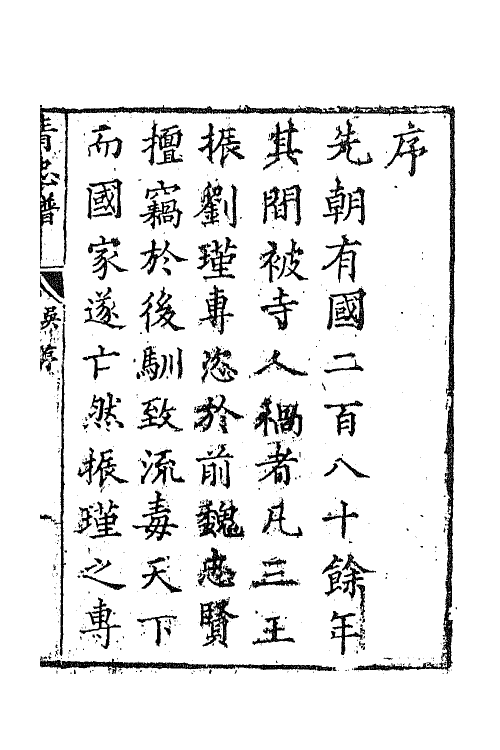 序
先朝有國二百八十餘年
其間被寺人禍者凡三王
振劉瑾專恣於前魏忠賢
擅竊於後馴致流毒天下
而國家遂亡然振瑾之專
清忠譜 吳序 一